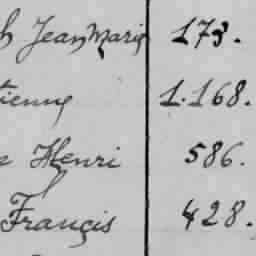 h Jean Marie 173.
tienne 1.168.
e Henri 586.
François 428.